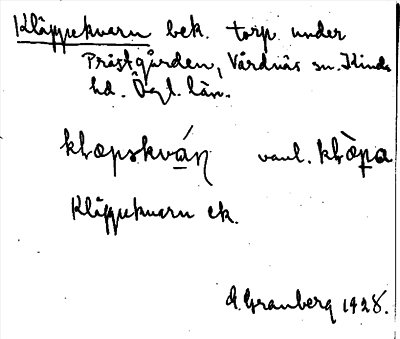 Kläppekvarn bek. torp under
Prästgården, Vårdnäs sn. Kinds
hd. Ögl. län.
kLæpskván vanl. kLæ̀pa
Kläppekvarn ek.
A. Granberg 1928.